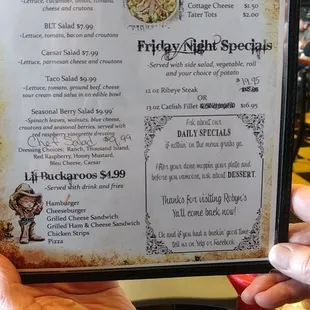 -Lettuce, cucumber, tomato,
cheese and crutons
BLT Salad $7.99
-Lettuce, tomato, bacon and croutons
Caesar Salad $7.99
-Lettuce, parmesan cheese and croutons
Taco Salad $7.99
-Lettuce, tomato, ground beef, cheese
sour cream and salsa in on edible bowl
Seasonal Berry Salad $9.99
-Spinach leaves, walnuts, blue cheese,
croutons and seasonal berries, served with
red raspberry vinegrette dressing
Chef Salad $9.99
Dressing Choices: Ranch, Thousand Island,
Red Raspberry, Honey Mustard,
Bleu Cheese, Caesar
Lil Buckaroos $4.99
-Served with drink and fries
Hamburger
Cheeseburger
Grilled Cheese Sandwich
Grilled Ham & Cheese Sandwich
Chicken Strips
Pizza
Cottage Cheese
Tater Tots $2.00
Friday Night Specials
-Served with side salad, vegetable, roll
and your choice of potato
$19.95
12 oz Ribeye Steak
OR
13 oz Catfish Fillet $16.95
Ask about our
DAILY SPECIALS
if nothin' on the menu grabs ya.
After your done moppin your plate and
before you vamoose, ask about DESSERT.
Thanks for visiting Robyn's
Ya'll come back, now!
Oh and if you had a hankin' good time
tell us so on Facebook